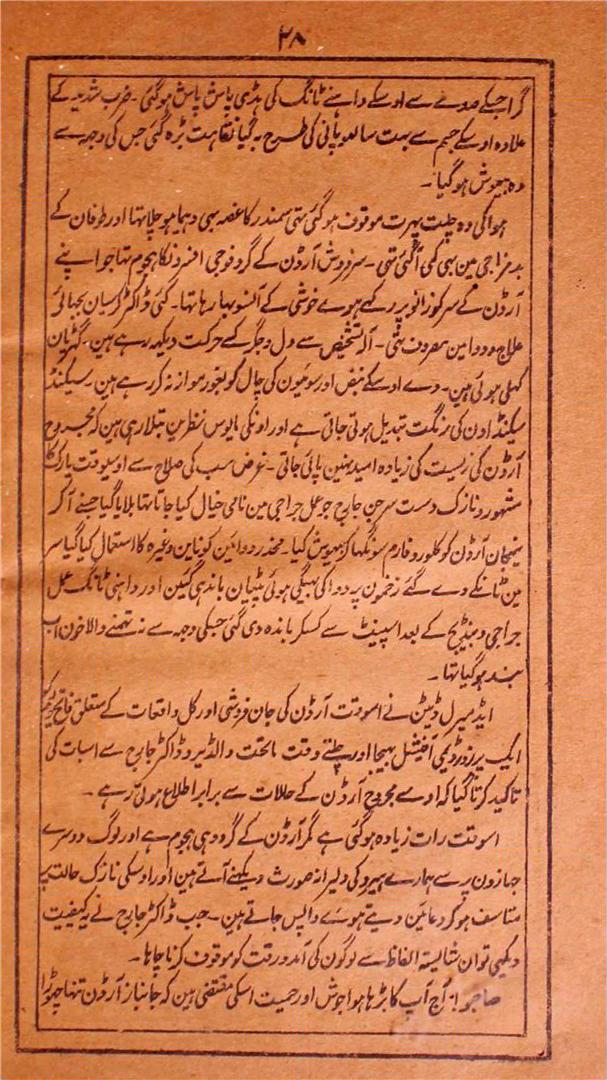 ۳۸
گرا جسکے صدمے سے اوسکے داہنے ٹانگ کی ہڈی پاش پاش ہوگئی ۔ ضرب شدید کے
علاوہ اوسکے جسم سے بہت سا لہو پانی کی طرح بہ گیا نقاہت بڑہ گئی جس کی وجہ سے
وہ بیہوش ہوگیا ۔
ہوا کی وہ چلت پہرت موقوف ہوگئی تہی سمندر کا غصہ بہی دہیما ہو چلا تہا اور طوفان کے
بدمزاجی مین بہی کمی آگئی تہی ۔ سرفروش آرڈن کے گرد فوجی افسرونکا ہجوم تہا جو اپنے
آرڈن کے سر کو زانو پر رکہے ہوے خوشی کے آنسو بہا رہا تہا ۔ کئی ڈاکٹر درمیان بحالئی
علاج و دوا مین مصروف تہی ۔ آلہ تشخیص سے دل و جگر کے حرکت دیکہہ رہے ہین ۔ گہڑیان
کہلی ہوئی ہین ۔ وے اوسکے نبض اور سوئیون کی چال کو بغور موازنہ کر رہے ہین ۔ سیکنڈ
سیکنڈ اون کی رنگت تبدیل ہوتی جاتی ہے اور اونکی مایوس نظرین بتلا رہی ہین کہ مجروح
آرڈن کی زیست کی زیادہ امید نہین پائی جاتی ۔ غرض سب کی صلاح سے اوسیوقت یارک کا
مشہور و نازک دست سرجن جارج جو عمل جراحی مین نامی خیال کیا جاتا تہا بلایا گیا جسنے آ کر
نیمجان آرڈن کو کلوروفارم سونگہا کر بیہوش کیا ۔ مخدر دوائین کوناین وغیرہ کا استعمال کیا گیا سر
مین ٹانکے دے گئے زخمون پر دوا کی بہیگی ہوئی پٹیان باندہی گئین اور داہنی ٹانگ عمل
جراحی و بنڈیج کے بعد اسپینٹ سے کسکر باندہ دی گئی جسکی وجہ سے نہ تہمنے والا خون اب
بند ہوگیا تہا ۔
ایڈمیرل ڈبٹن نے اسوقت آرڈن کی جان فروشی اور کل واقعات کے متعلق فاتح
ایک پرزور ڈیمی آفیشل بہیجا اور چلتے وقت ماتحت والنٹیر و ڈاکٹر جارج سے اسبات کی
تاکید کرتا گیا کہ اوسے مجروح آرڈن کے حالات سے برابر اطلاع ہوتی رہے ۔
اسوقت رات زیادہ ہوگئی ہے مگر آرڈن کے گرد وہی ہجوم ہے اور لوگ دوسرے
جہازون پر سے ہمارے ہیرو کی دلیرانہ صورت دیکہنے آتے ہین اور اوسکی نازک حالت پر
متاسف ہو کر دعائین دیتے ہوئے واپس جاتے ہین ۔ جب ڈاکٹر جارج نے یہ کیفیت
دیکہی تو ان شائستہ الفاظ سے لوگون کی آمدورفت کو موقوف کرنا چاہا ۔
صاحبو ! آج آپ کا بڑہا ہوا جوش اور حمیت اسکی مقتضی ہین کہ جانباز آرڈن تنہا چہوڑا